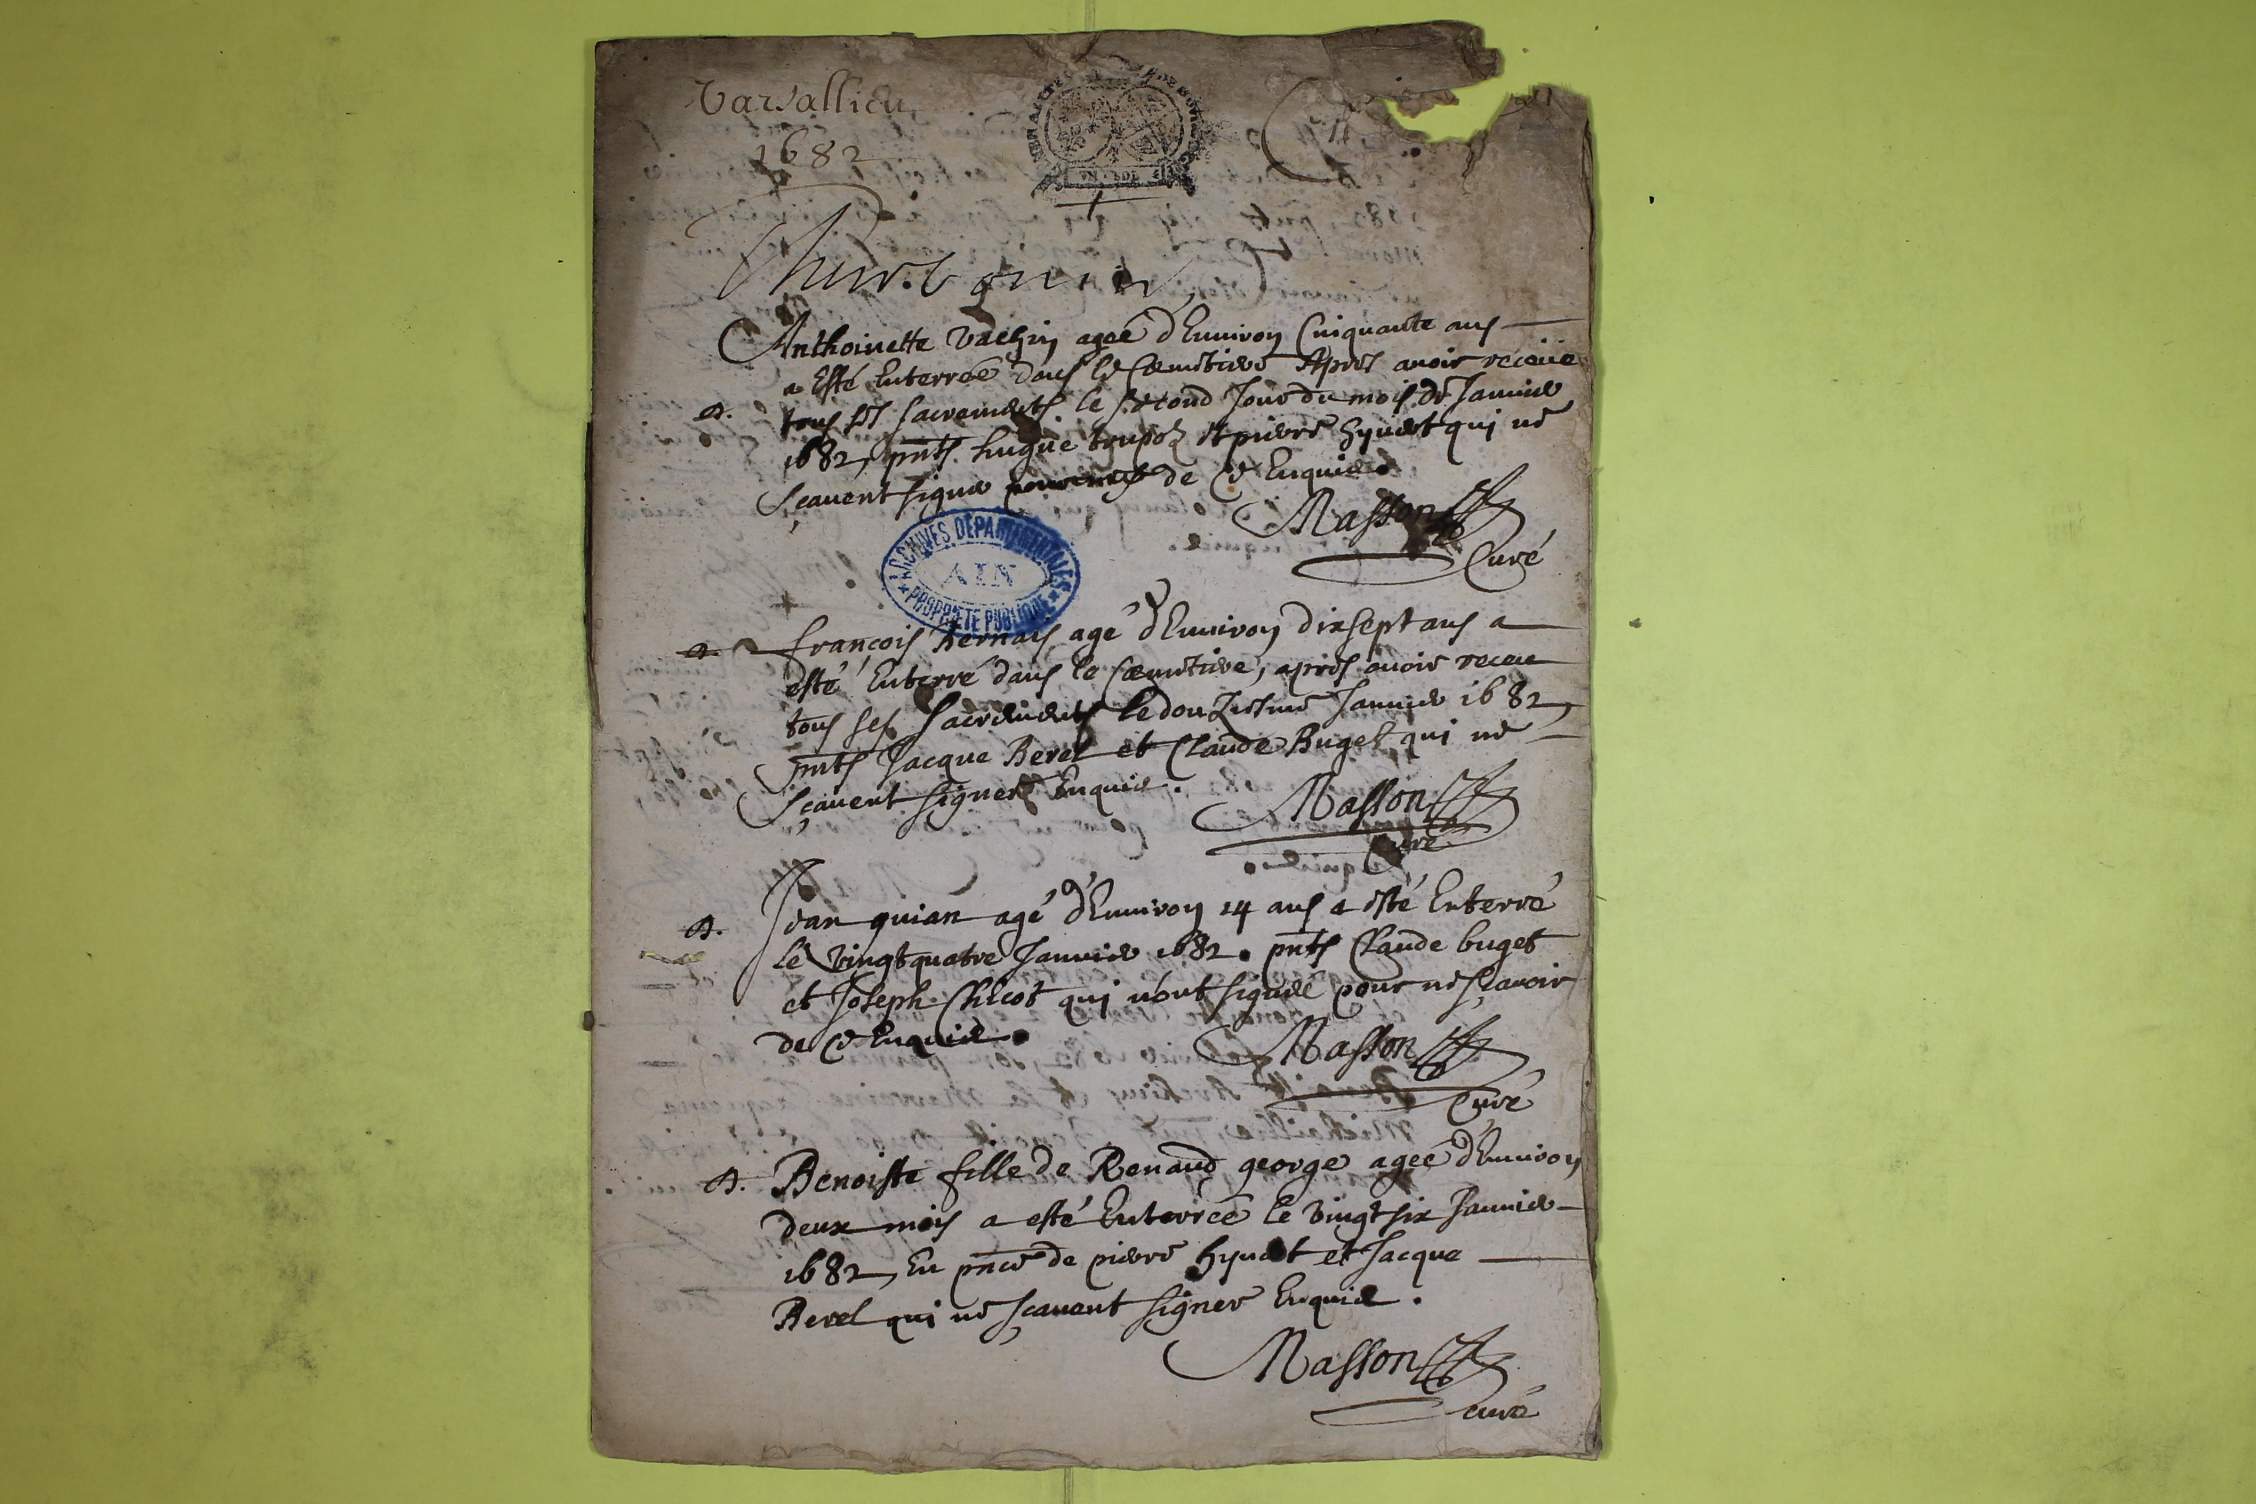 Varsallieu
1682
UN SOL
Anthoinette Vachin ageé d'Enuiron Cinquante ans
a Esté Enterreé dans le Cœmetiere Apres auoir receüe
tous ses sacrements le second Jour du mois de Januier
1682, pnts hugue et pierre hyuert qui ne
sçauent signer de ce Enquis.
Masson
Curé
ARCHIVES DEPARTEMENTALES
AIN
PROPRIETE PUBLIQUE
françois Bernais agé d'Enuiron dixsept ans a
esté Enterré dans le Cœmetiere, apres auoir receue
tous ses Sacrements le douziesme Januier 1682,
pnts Jacque Berel et Claude Buget qui ne
sçauent signer Enquis.
Masson
Curé
Jean quian agé d'Enuiron 14 ans a esté Enterré
le Vingtquatre Januier 1682. pnts Claude buget
et Joseph Chicot qui n'ont signé pour ne sçauoir
de ce Enquis.
Masson
Curé
Benoiste fille de Renaud george ageé d'Enuiron
deux mois a esté Enterreé le Vingt six Januier
1682, En pnce de pierre hyuert et Jacque
Berel qui ne sçauent signer Enquis.
Masson
curé